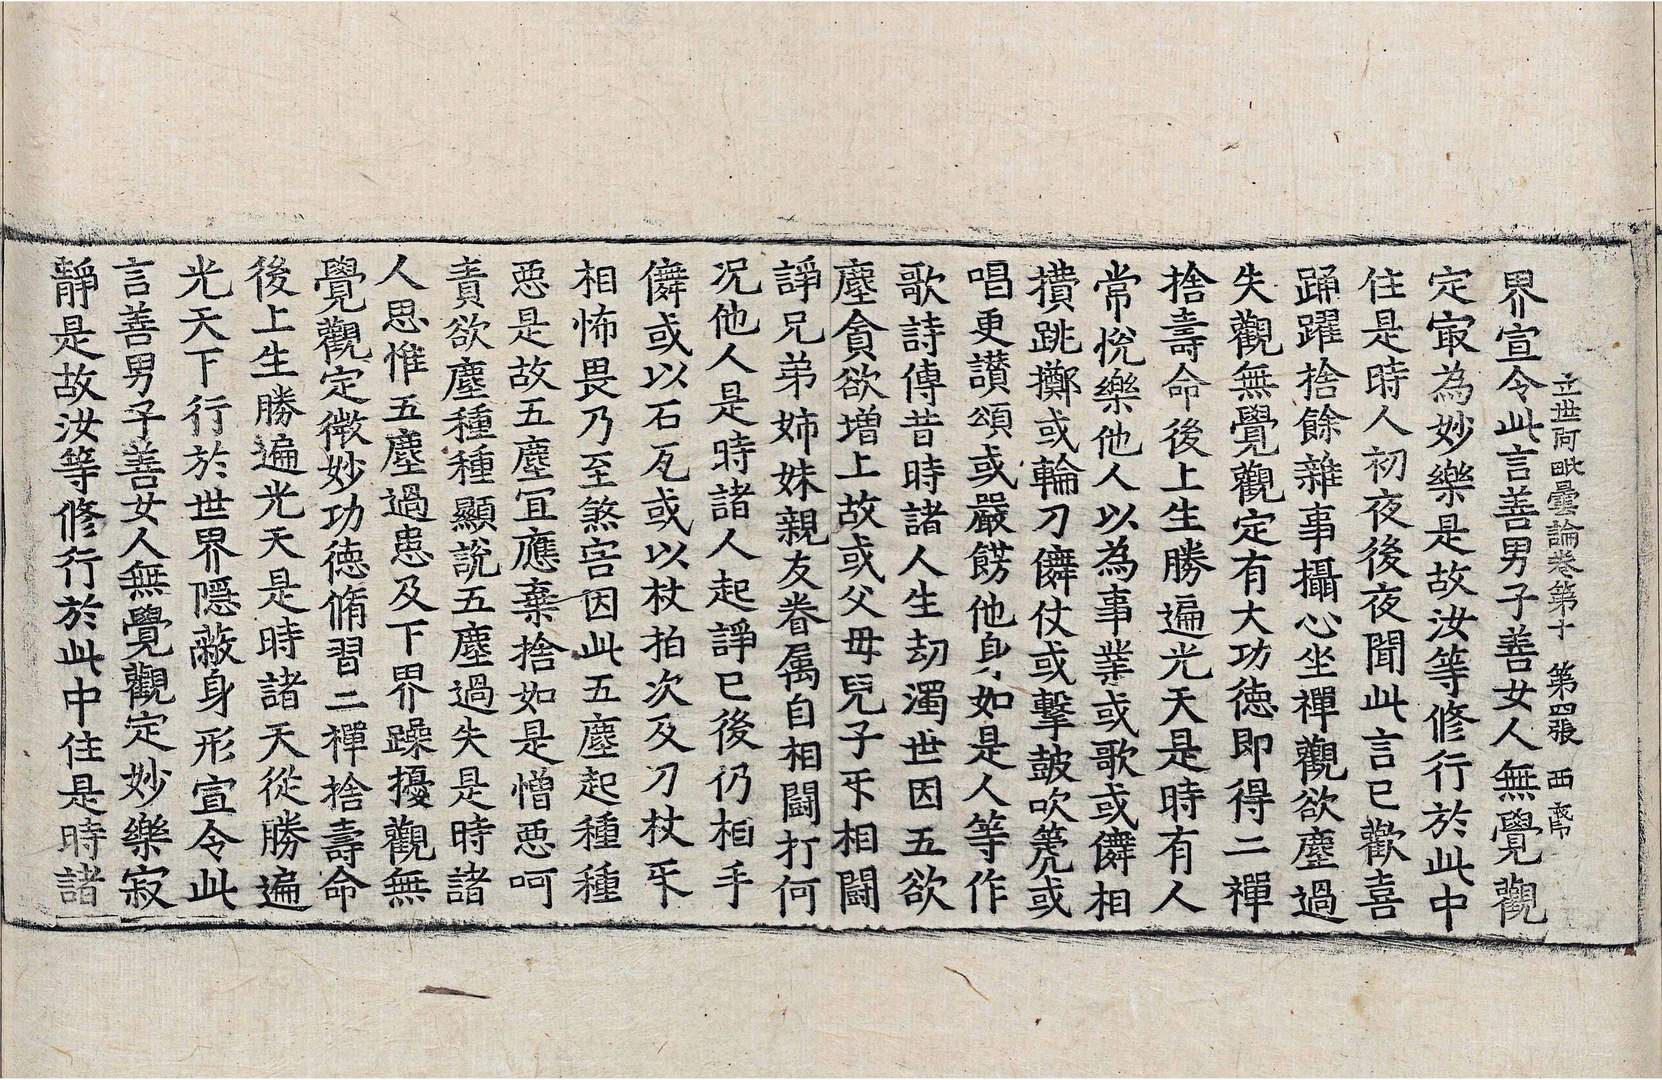 立世阿毗曇論卷第十 第四張 西
界宣令此言善男子善女人無覺觀
定冣為妙樂是故汝等修行於此中
住是時人初夜後夜聞此言已歡喜
踊躍捨餘雜事攝心坐禪觀欲塵過
失觀無覺觀定有大功德即得二禪
捨壽命後上生勝遍光天是時有人
常恱樂他人以為事業或歌或儛相
攢跳擲或輪刀儛仗或擊鼓吹箎或
唱更讃頌或嚴餝他身如是人等作
歌詩傳昔時諸人生劫濁世因五欲
塵貪欲增上故或父母兒子乐相鬪
諍兄弟姊妹親友眷属自相鬪打何
况他人是時諸人起諍已後仍相手
儛或以石瓦或以杖拍次及刀杖乐
相怖畏乃至煞害因此五塵起種種
惡是故五塵冝應棄捨如是憎惡呵
責欲塵種種顯說五塵過失是時諸
人思惟五塵過患及下界躁擾觀無
覺觀定微妙功德脩習二禪捨壽命
後上生勝遍光天是時諸天從勝遍
光天下行於世界隱蔽身形宣令此
言善男子善女人無覺觀定妙樂寂
靜是故汝等修行於此中住是時諸